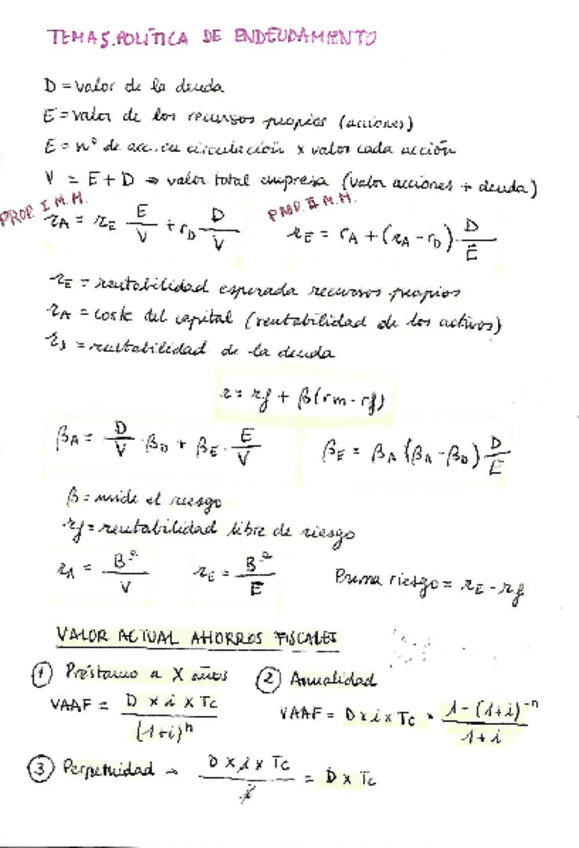 TEMA 5. POLÍTICA DE ENDEUDAMIENTO
D = valor de la deuda
E = valor de los recursos propios (acciones)
E = nº de acc. en circulación x valor cada acción
V = E + D → valor total empresa (valor acciones + deuda)
PROP. I M.M.
rA = rE E/V + rD D/V
PROP. II M.M.
rE = rA + (rA - rD) · D/E
rE = rentabilidad esperada recursos propios
rA = coste del capital (rentabilidad de los activos)
rD = rentabilidad de la deuda
r = rf + β(rm - rf)
βA = D/V · βD + βE · E/V
βE = βA (βA - βD) D/E
β = mide el riesgo
rf = rentabilidad libre de riesgo
rA = Bº/V rE = Bº/E Prima riesgo = rE - rf
VALOR ACTUAL AHORROS FISCALES
① Préstamo a X años
VAAF = D x i x Tc / (1+i)^n
② Anualidad
VAAF = D x i x Tc · 1 - (1+i)^-n / 1+i
③ Perpetuidad → D x i x Tc / i = D x Tc